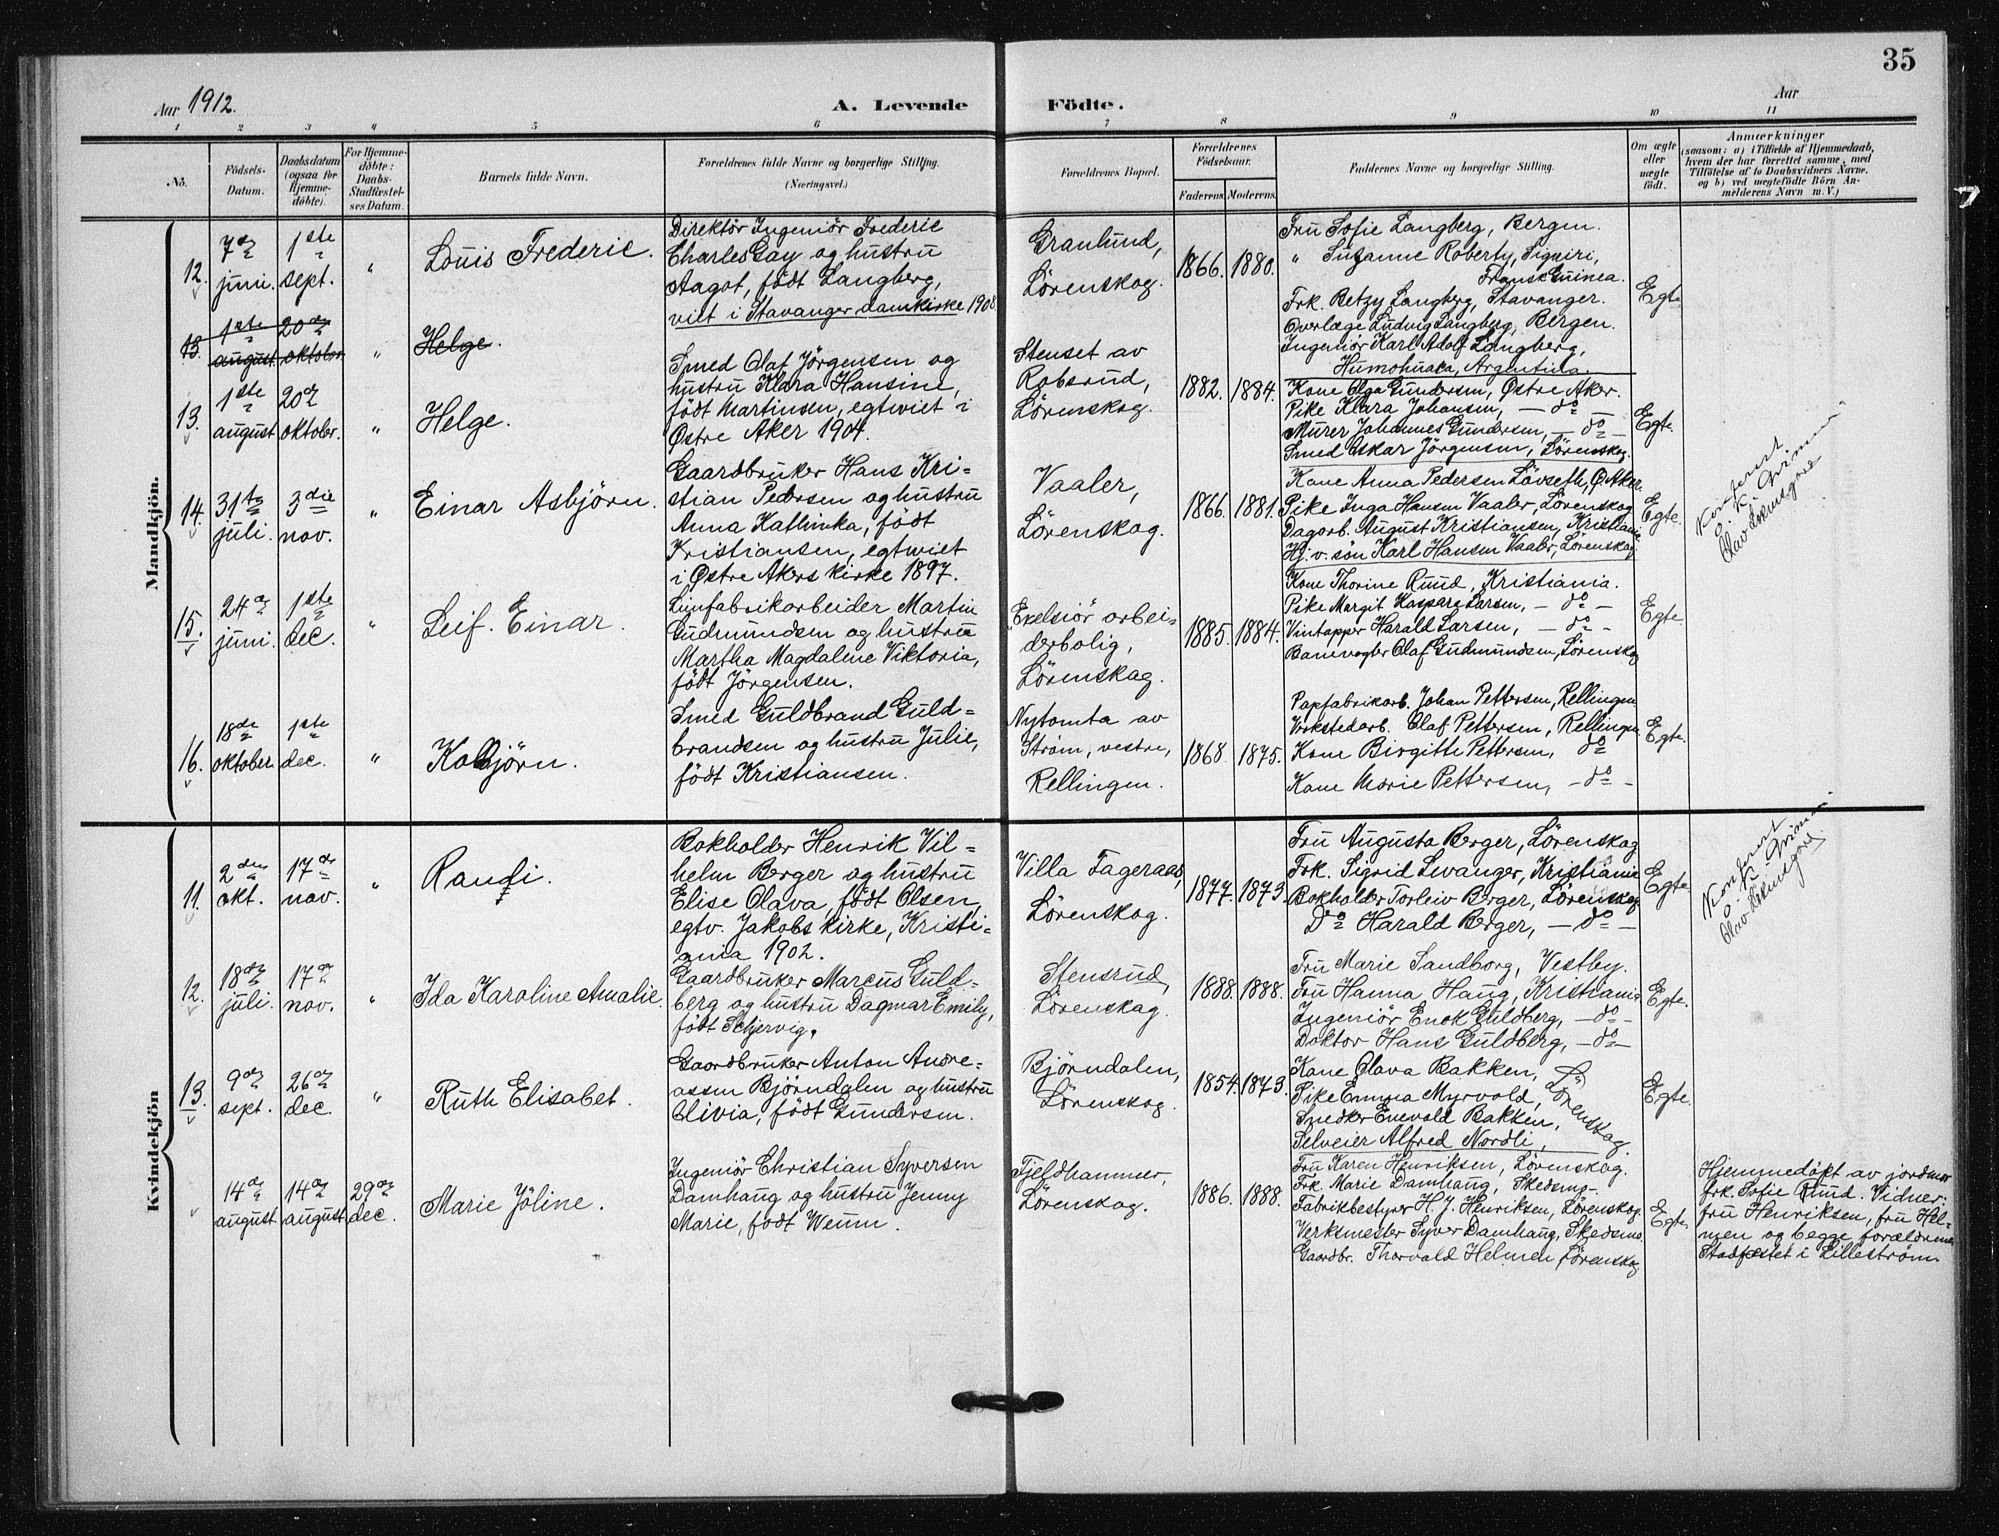 35
Aar 1912.
A. Levende Födte.
Aar
1 2 3 4 5 6 7 8 9 10 11
No.
Födsels-
Datum.
Daabsdatum
(ogsaa for
Hjemme-
döbte).
For Hjemme-
döbte:
Daabs-
Stadfæstel-
ses Datum.
Barnets fulde Navn.
Forældrenes fulde Navne og borgerlige Stilling.
(Næringsvei.)
Forældrenes Bopæl.
Forældrenes
Födselsaar.
Faderens. Moderens.
Faddernes Navne og borgerlige Stilling.
Om ægte
eller
uægte
födt.
Anmærkninger
(saasom: a) i Tilfælde af Hjemmedaab,
hvem der har forrettet samme, med
Tilföielse af to Daabsvidners Navne,
og b) ved uægtefödte Börn An-
melderens Navn m. V.)
Mandkjön.
12.
7de
juni.
1ste
sept.
"
Louis Frederic.
Direktör Ingeniör Frederic
Charles Gay og hustru
Aagot, födt Langberg,
viet i Stavanger domkirke 1908.
Granlund,
Lörenskog.
1866. 1880.
Fru Sofie Langberg, Bergen.
" Suzanne Roberty, Siguiri,
Fransk Guinea.
Frk. Betzy Langberg, Stavanger.
Overlæge Ludvig Langberg, Bergen.
Ingeniör Karl Adolf Langberg,
Humohuaca, Argentida.
Egte.
13.
1ste
august
20de
oktober.
"
Helge.
13.
1ste
august
20de
oktober.
"
Helge.
Smed Olaf Jörgensen og
hustru Klara Hansine,
födt Martinsen, egtviet i
Østre Aker 1904.
Stenset av
Robsrud,
Lörenskog.
1882. 1884.
Kone Olga Gundersen, Østre Aker.
Pike Klara Johansen, — do —
Murer Johannes Gundersen, — do —
Smed Oskar Jörgensen, Lörenskog.
Egte.
14.
31te
juli.
3die
nov.
"
Einar Asbjörn.
Gaardbruker Hans Kri-
stian Pedersen og hustru
Anna Kathinka, födt
Kristiansen, egtviet
i Østre Akers kirke 1897.
Vaaler,
Lörenskog.
1866. 1881.
Kone Anna Pedersen Lövseth, Ø. Aker.
Pike Inga Hansen Vaaler, Lörenskog
Dagarb. August Kristiansen, Kristiania
Hj. v. sön Karl Hansen Vaaler, Lörenskog.
Egte.
15.
24de
juni.
1ste
dec.
"
Leif. Einar.
Limfabrikarbeider Martin
Gudmundsen og hustru
Martha Magdalene Viktoria,
födt Jörgensen.
Exelsiör arbei-
derbolig,
Lörenskog.
1885. 1884.
Kone Thorine Ruud, Kristiania.
Pike Margit Kaspara Larsen, — do —
Vintapper Harald Larsen, — do —
Banevogter Olaf Gudmundsen, Lörenskog
Egte.
16.
18de
oktober.
1ste
dec.
"
Kolbjörn.
Smed Guldbrand Guld-
brandsen og hustru Julie,
födt Kristiansen.
Nytomta av
Ström, vestre,
Rellingen.
1868 1875.
Papfabrikarb. Johan Pettersen, Rellingen
Verkstedarb. Olaf Pettersen, Rellingen
Kone Birgitte Pettersen, do
Kone Marie Pettersen, — do —
Egte.
Kvindekjön
11.
2den
okt.
17de
nov.
"
Randi.
Bokholder Henrik Vil-
helm Berger og hustru
Elise Olava, födt Olsen,
egtv. Jakobs kirke, Kristi-
ania 1902.
Villa Fageraas,
Lörenskog.
1877. 1873.
Fru Augusta Berger, Lörenskog
Frk. Sigrid Levanger, Kristiania
Bokholder Torleiv Berger, Lörenskog
Do Harald Berger, — do —
Egte.
12.
18de
juli.
17de
nov.
"
Ida Karoline Amalie.
Gaardbruker Marcus Guld-
berg og hustru Dagmar Emily,
födt Schjervig.
Stensrud,
Lörenskog.
1888. 1888.
Fru Marie Sandborg, Vestby.
Fru Hanna Haug, Kristiania
Ingeniör Enok Guldberg, — do —
Doktor Hans Guldberg, — do —
Egte.
13.
9de
sept.
26de
dec.
"
Ruth Elisabet.
Gaardbruker Anton Andre-
assen Björndalen og hustru
Olivia, födt Gundersen.
Björndalen,
Lörenskog.
1854. 1873.
Kone Olava Bakken,
Pike Emma Myrvold,
Snedker Enevold Bakken,
Selveier Alfred Nordli,
Lörenskog.
Egte.
14de
august
14de
august
29de
dec.
Marie Jöline.
Ingeniör Christian Syversen
Damhaug og hustru Jenny
Marie, födt Weum.
Fjeldhammer,
Lörenskog.
1886. 1888.
Fru Karen Henriksen, Lörenskog.
Frk. Marie Damhaug, Skedsmo.
Fabrikbestyrer H. J. Henriksen, Lörenskog.
Verksmester Syver Damhaug, Skedsmo.
Gaardbr. Thorvald Helmen, Lörenskog
Egte.
Hjemmedöpt av jordmor
frk. Sofie Ruud. Vidner:
fru Henriksen, fru Hel-
men og begge forældrene
Stadfæstet i Lilleström.